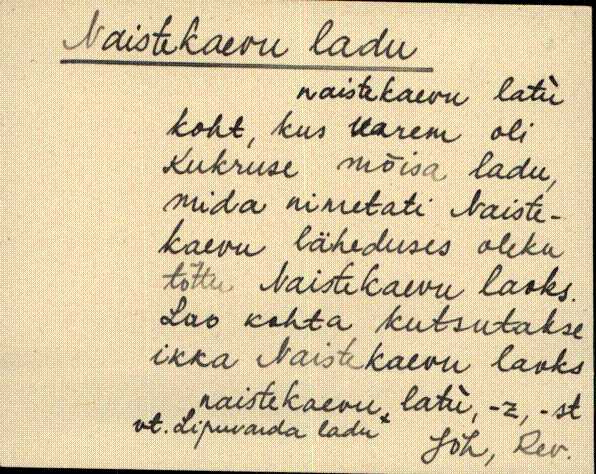 Naistekaevu ladu
naistekaevu latù
koht, kus varem oli
Kukruse mõisa ladu,
mida nimetati Naiste-
kaevu läheduses oleku
tõttu Naistekaevu laoks.
Lao kohta kutsutakse
ikka Naistekaevu laoks
naistekaevu latù, -z, -st
vt. Lipuvarda ladu
Jõh, Rev.